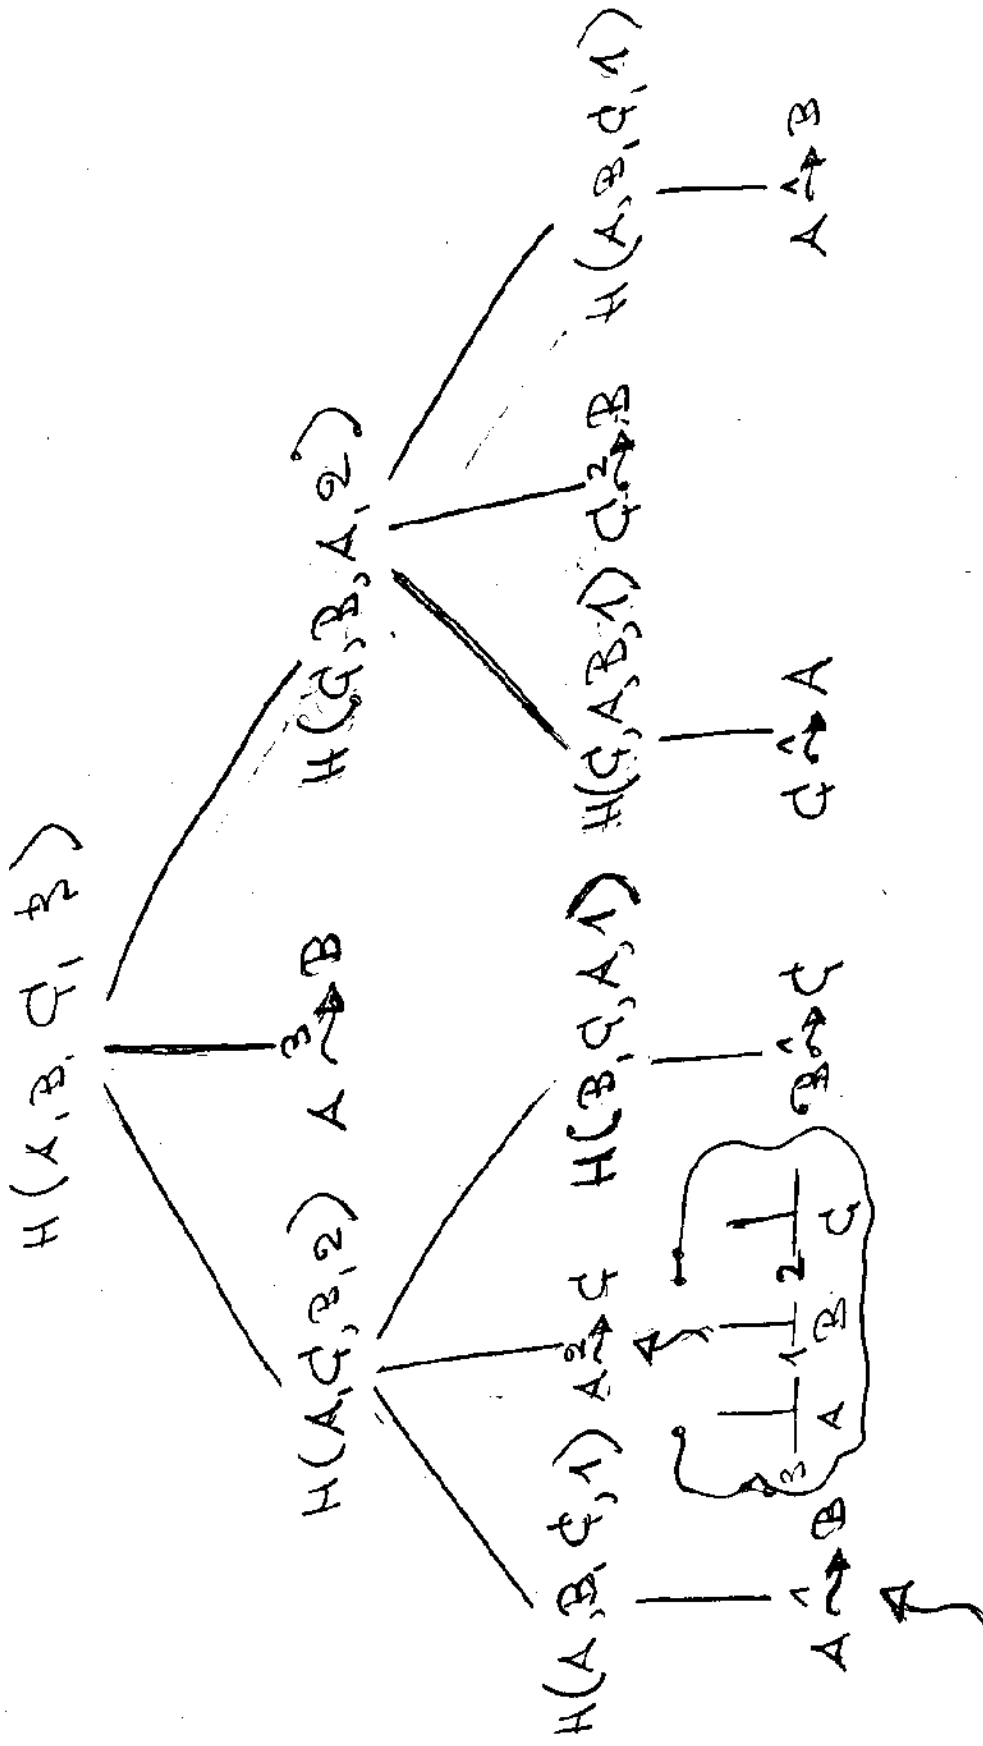 H(A, B, C, 3)
H(A, C, B, 2) A 3→ B H(C, B, A, 2)
H(A, B, C, 1) A 2→ C H(B, C, A, 1) H(C, A, B, 1) C 2→ B H(A, B, C, 1)
3 1 2
A B C
A 1→ B B 1→ C C 1→ A A 1→ B